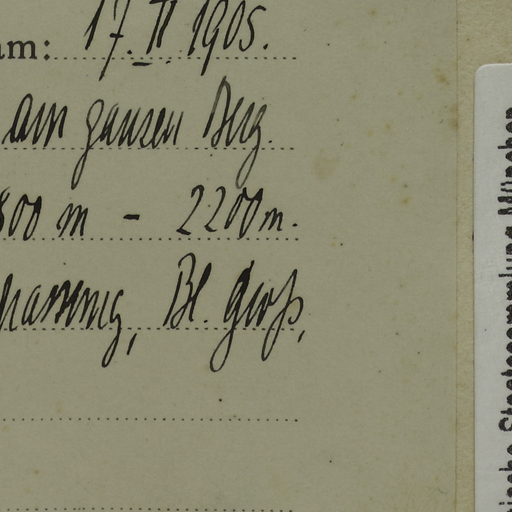 am: 17. II 1905.
am ganzen Berg.
800 m - 2200 m.
Bl. groß,
Staatssammlung München